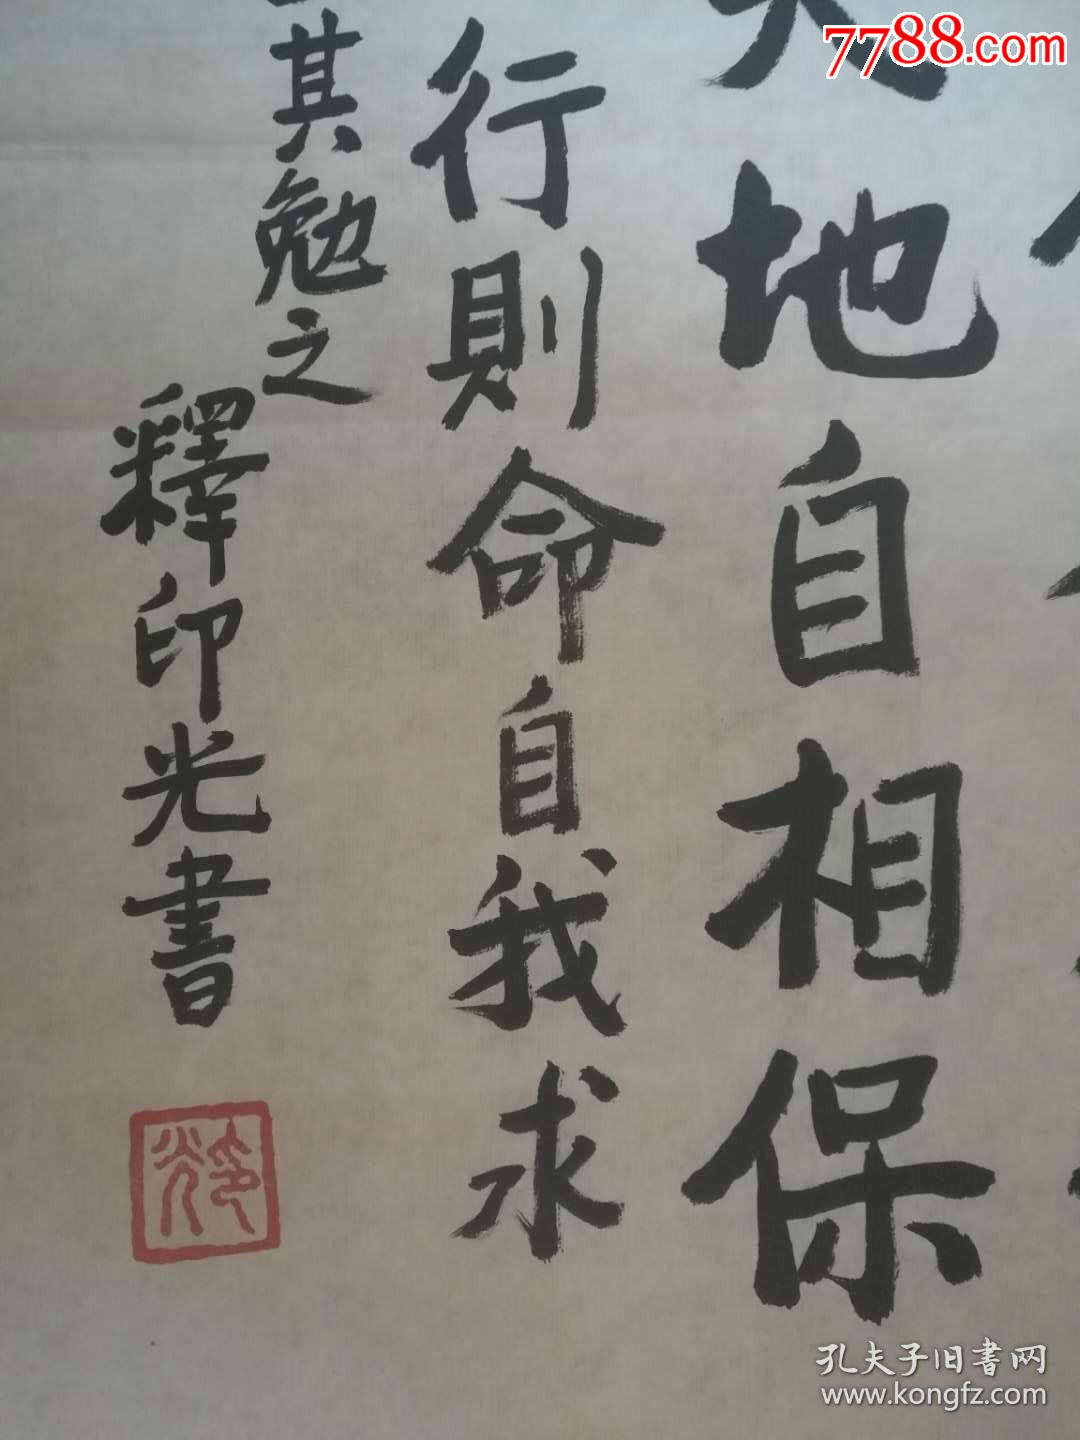 天地自相保
行則命自我求
其勉之
釋印光書
印光
7788.com
孔夫子旧書网
www.kongfz.com